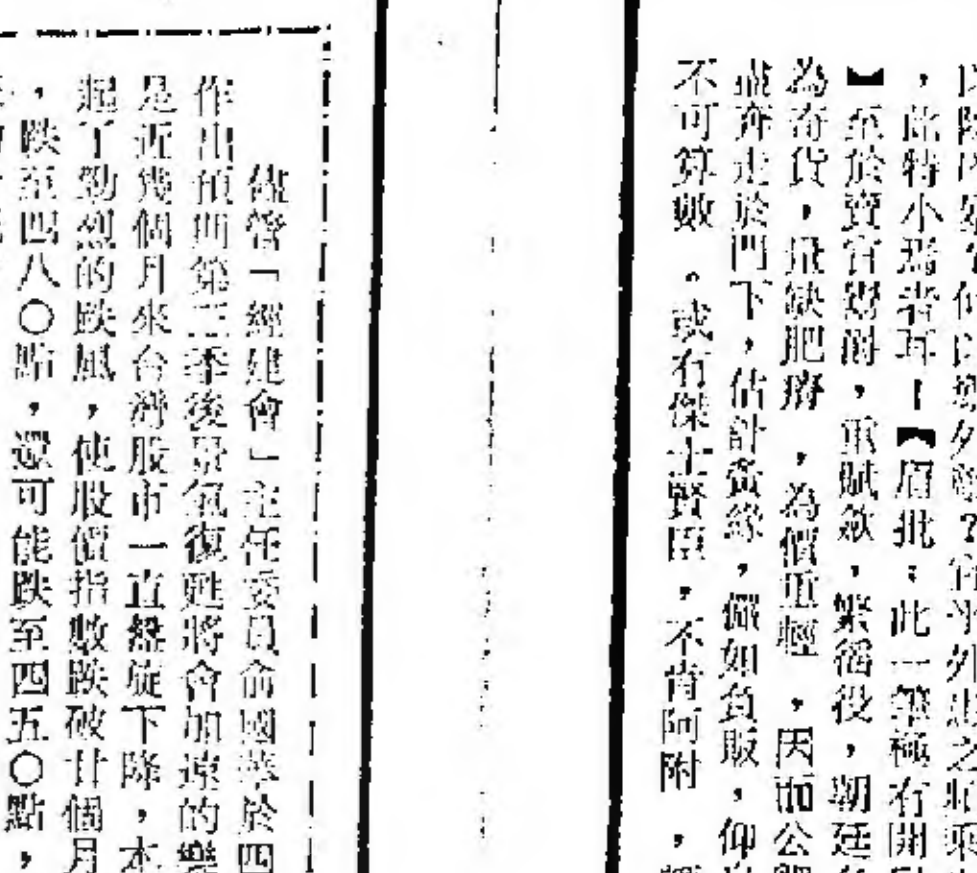 ，此特小焉者耳！【眉批：此一筆極有開
】至於賣官鬻爵，重賦斂，繁徭役，朝廷
為奇貨，最缺肥瘠，為價重輕，因而公
盡奔走於門下，估計夤緣，儼如負販，仰
不可算數。或有傑士賢臣，不肯阿附，
儘管「經建會」主任委員俞國華於四
作出預期第三季後景氣復甦將會加速的樂
是近幾個月來台灣股市一直盤旋下降，本
起了勁烈的跌風，使股價指數跌破廿個月
，跌至四八〇點，還可能跌至四五〇點，